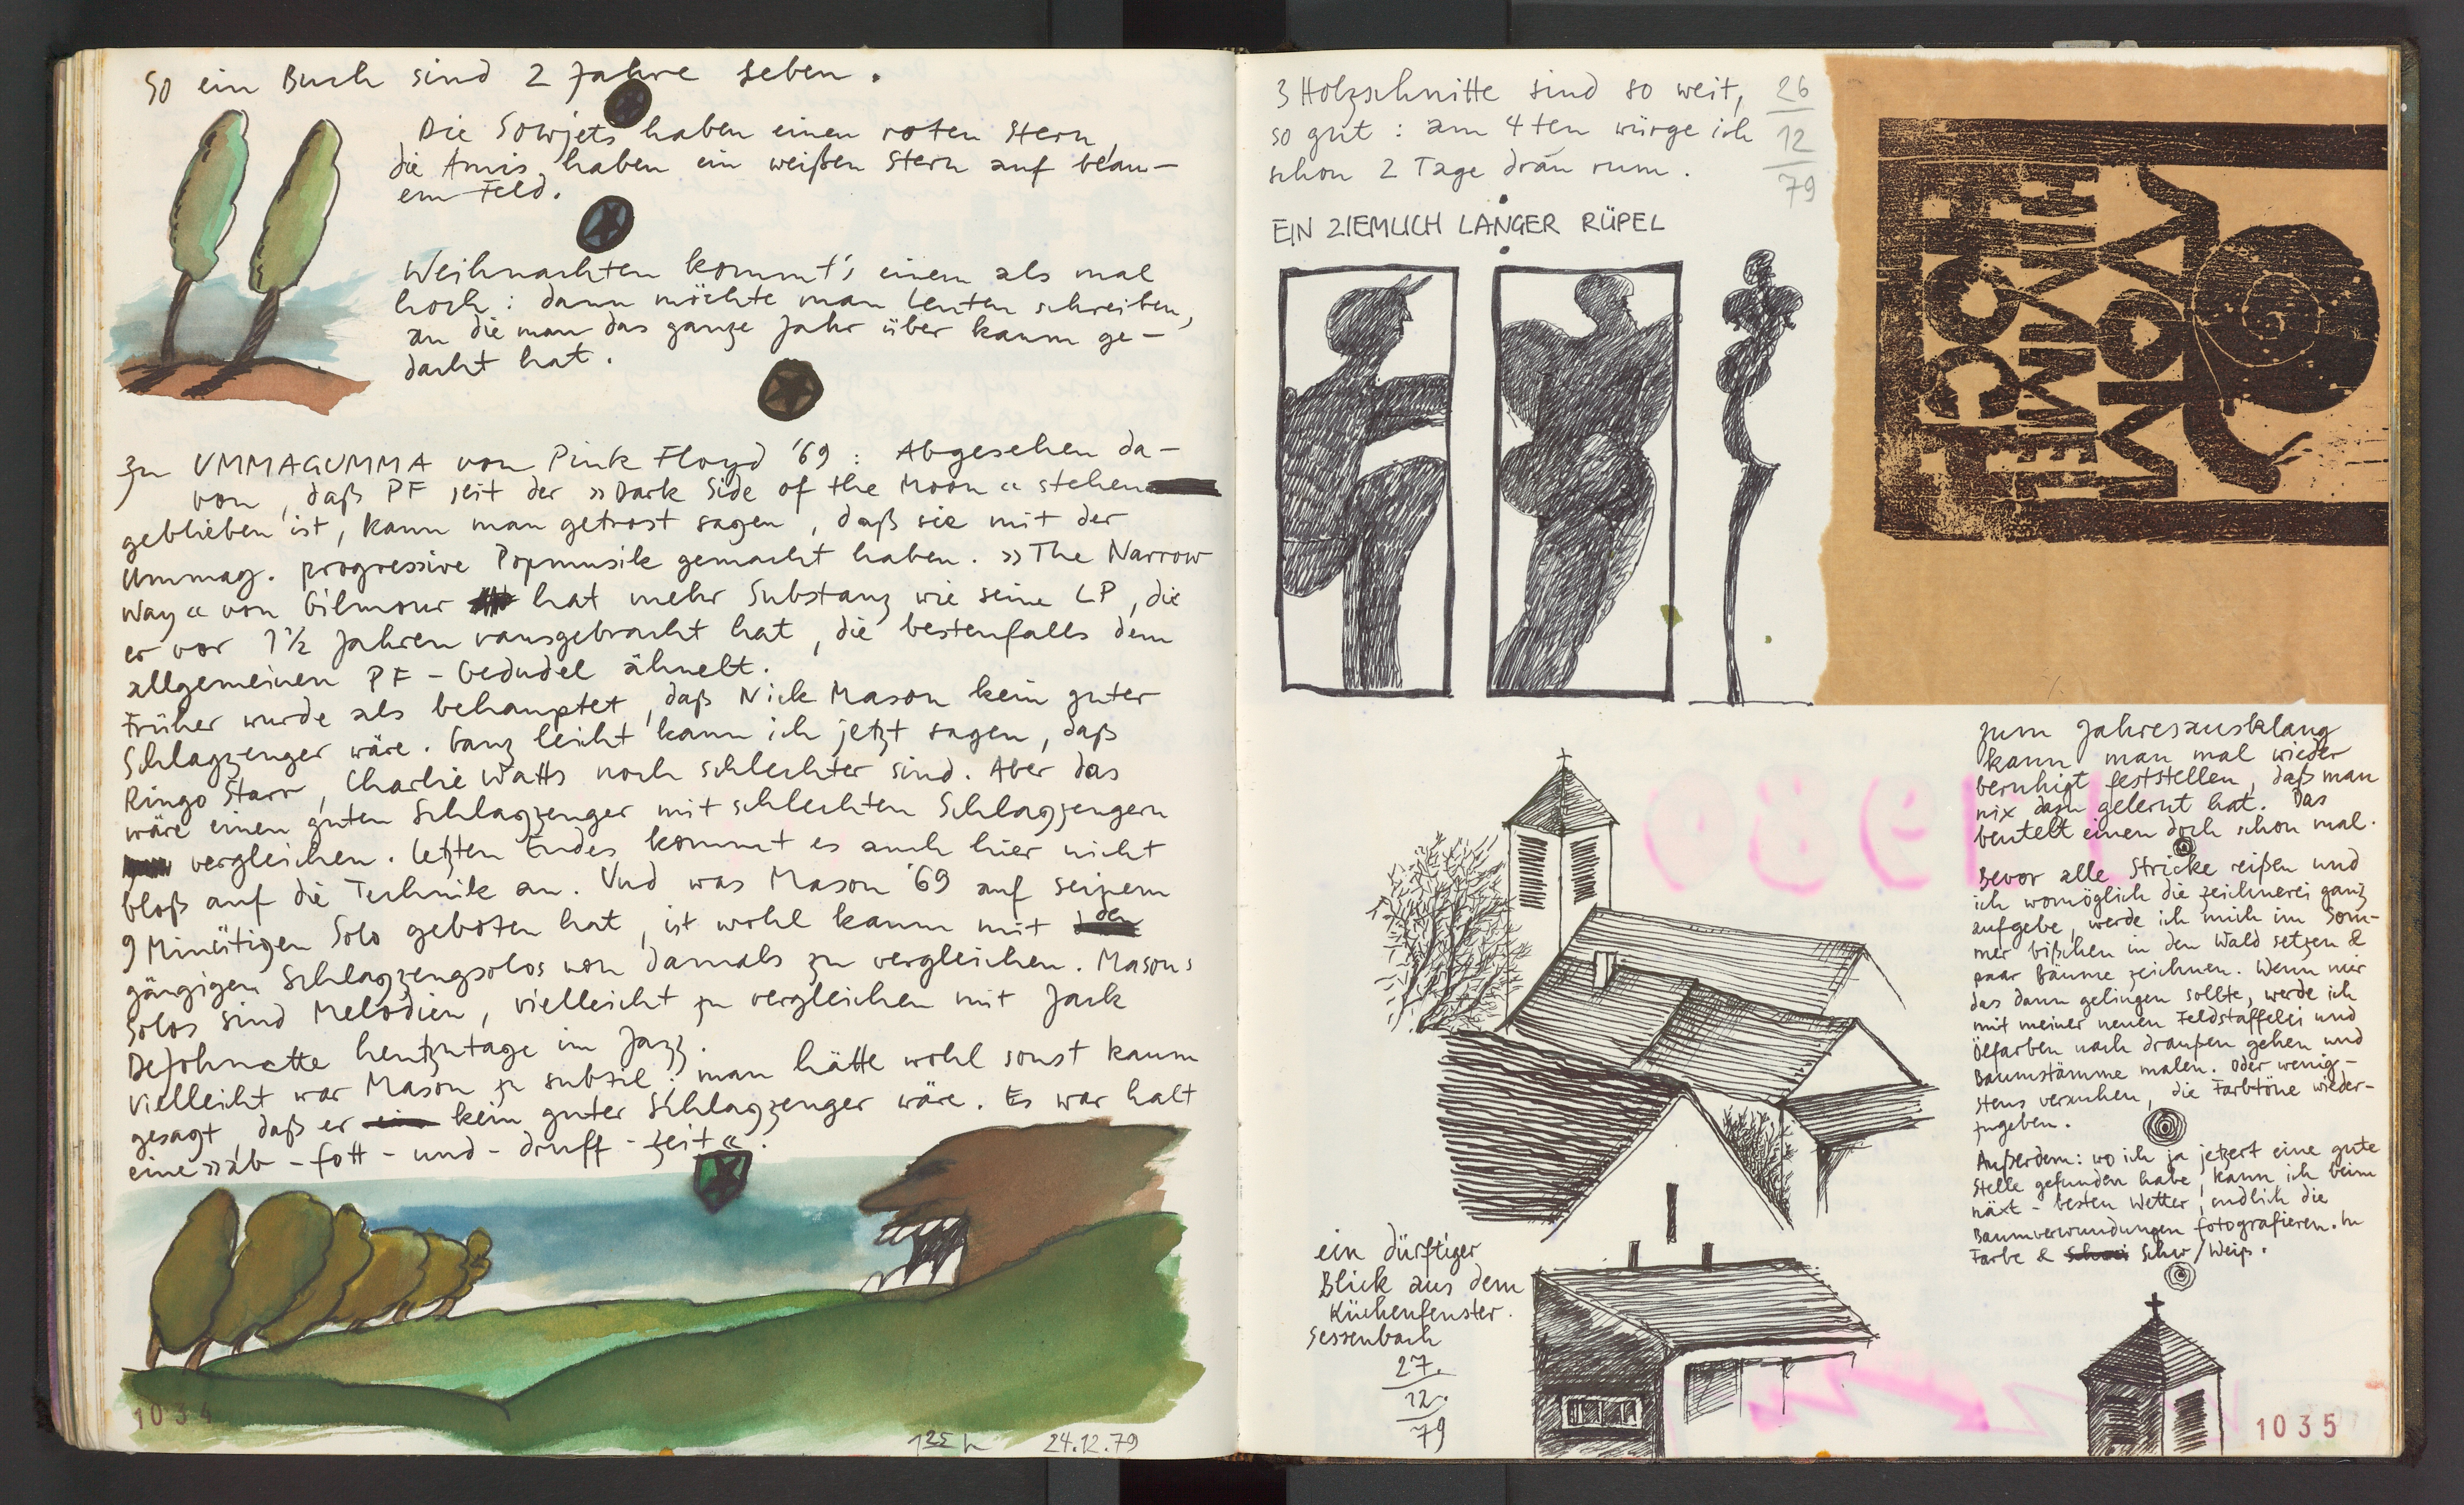 So ein Buch sind 2 Jahre Leben.
Die Sowjets haben einen roten Stern,
die Amis haben ein weißen Stern auf blau-
em Feld.
Weihnachten kommt's einem als mal
hoch: dann möchte man Leuten schreiben,
an die man das ganze Jahr über kaum ge-
dacht hat.
Zu UMMAGUMMA von Pink Floyd '69: Abgesehen da-
von, daß PF seit der »Dark Side of the Moon« stehen
geblieben ist, kann man getrost sagen, daß sie mit der
Ummag. progressive Popmusik gemacht haben. »The Narrow
Way« von Gilmour hat mehr Substanz wie seine LP, die
er vor 1½ Jahren rausgebracht hat, die bestenfalls dem
allgemeinen PF-Gedudel ähnelt.
Früher wurde als behauptet, daß Nick Mason kein guter
Schlagzeuger wäre. Ganz leicht kann ich jetzt sagen, daß
Ringo Starr, Charlie Watts noch schlechter sind. Aber das
wäre einen guten Schlagzeuger mit schlechten Schlagzeugern
vergleichen. Letzten Endes kommt es auch hier nicht
bloß auf die Technik an. Und was Mason '69 auf seinem
9 Minütigen Solo geboten hat, ist wohl kaum mit den
gängigen Schlagzeugsolos von damals zu vergleichen. Masons
Solos sind Melodien, vielleicht zu vergleichen mit Jack
DeJohnette heutzutage im Jazz.
Vielleicht war Mason zu subtil: man hätte wohl sonst kaum
gesagt, daß er ein kein guter Schlagzeuger wäre. Es war halt
eine »ab-fott-und-druff-Zeit«.
1034
24.12.79
3 Holzschnitte sind so weit,
so gut: am 4ten würge ich
schon 2 Tage dran rum.
26
12
79
EIN ZIEMLICH LANGER RÜPEL
HOCH
HIMMEL
1980
zum Jahresausklang
kann man mal wieder
beruhigt feststellen, daß man
nix dazu gelernt hat. Das
beutelt einen doch schon mal.
Bevor alle Stricke reißen und
ich womöglich die Zeichnerei ganz
aufgebe, werde ich mich im Som-
mer bißchen in den Wald setzen &
paar Bäume zeichnen. Wenn mir
das dann gelingen sollte, werde ich
mit meiner neuen Feldstaffelei und
Ölfarben nach draußen gehen und
Baumstämme malen. Oder wenig-
stens versuchen, die Farbtöne wieder-
zugeben.
Außerdem: wo ich ja jetzert eine gute
Stelle gefunden habe, kann ich beim
näxt-besten Wetter, endlich die
Baumverwundungen fotografieren. In
Farbe & Schw/Weiß.
ein dürftiger
Blick aus dem
Küchenfenster.
Sessenbach
27.
12.
79
1035